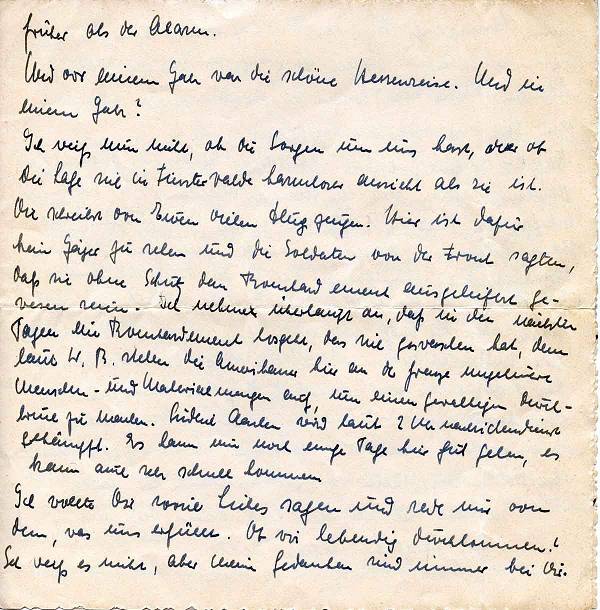 früher als der Alarm.
Und vor einem Jahr war die schöne Herrenreise. Und in
einem Jahr?
Ich weiß nun nicht, ob Du Sorgen um uns hast, oder ob
Du die Lage in Finsterwalde harmloser ansieht als sie ist.
Du schreibst von Euren vielen Flugzeugen. Hier ist dafür
kein Jäger zu sehen und die Soldaten von der Front sagten,
daß sie ohne Schutz dem Bombardement ausgeliefert ge-
wesen seien. Ich nehme überhaupt an, daß in den nächsten
Tagen ein Bombardement losgeht, das sie gewaschen hat, denn
laut W. B. stehen die Amerikaner hier an der Grenze ungeheure
Menschen- und Materialmengen auf, um einen gewaltigen Durch-
bruch zu machen. Südlich Aachen wird laut 2 Uhr nachrichtendienst
gekämpft. Es kann nur noch einige Tage hier gut gehen, es
kann auch sehr schnell kommen
Ich wollte Dir soviel Liebes sagen und rede nur von
dem, was uns erfüllt. Ob wir lebendig durchkommen?
Ich weiß es nicht, aber meine Gedanken sind immer bei Dir.